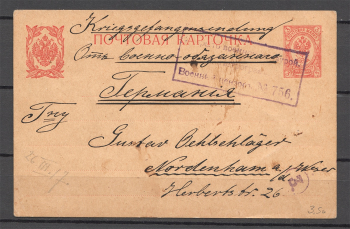 Kriegsgefangensendung
ПОЧТОВАЯ КАРТОЧКА
Отъ военно-обязаннаго
Военн. № 756.
Германія
Gustav Oehlschläger
Nordenham a/d Weser
Herbertstr. 26
3,50